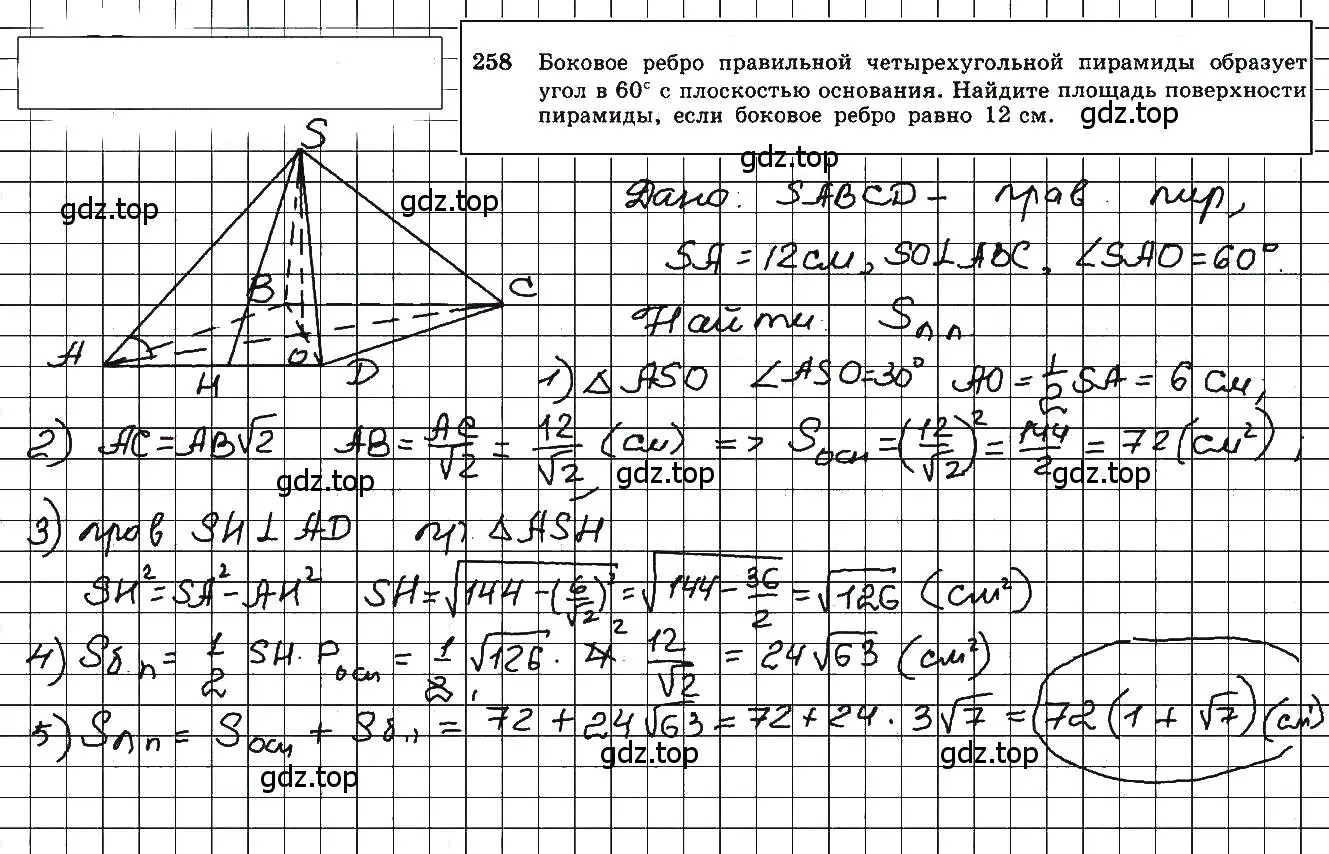 258 Боковое ребро правильной четырехугольной пирамиды образует
угол в 60° с плоскостью основания. Найдите площадь поверхности
пирамиды, если боковое ребро равно 12 см. gdz.top
gdz.top
S
gdz.top gdz.top
Дано: SABCD – прав. пир,
SA = 12 см, SO⊥ABC, ∠SAO = 60°.
B C
Найти Sп.п.
A H O D
1) △ASO ∠ASO = 30° AO = 1/2 SA = 6 см,
2) AC = AB√2 AB = AC/√2 = 12/√2 (см) => Sосн = (12/√2)² = 144/2 = 72 (см²);
gdz.top gdz.top gdz.top
3) пров SH ⊥ AD пр △ASH
SH² = SA² - AH² SH = √(144 - (6/√2)²) = √(144 - 36/2) = √126 (см²)
4) Sб.п = 1/2 SH · Pосн = 1/2 √126 · 4 · 12/√2 = 24√63 (см²)
5) Sп.п = Sосн + Sб.п = 72 + 24√63 = 72 + 24 · 3√7 = 72(1 + √7) (см²)
gdz.top gdz.top gdz.top